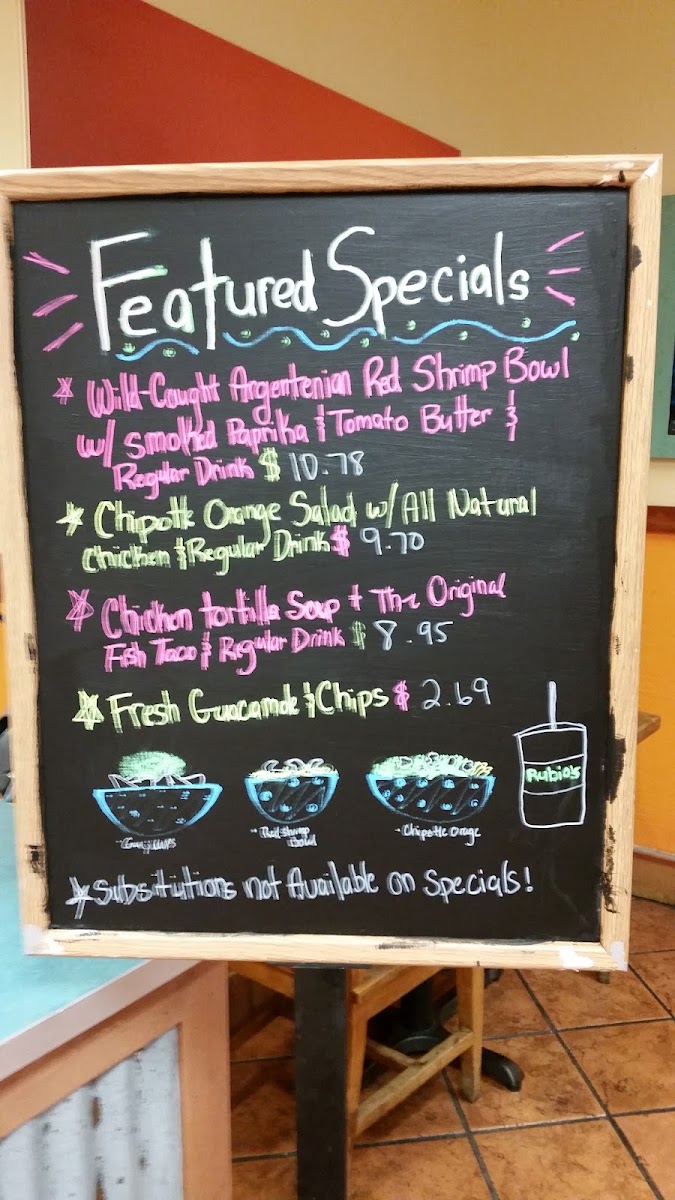 Featured Specials
Wild-Caught Argentenian Red Shrimp Bowl
w/ Smoked Paprika & Tomato Butter &
Regular Drink $ 10.78
Chipotle Orange Salad w/ All Natural
Chicken & Regular Drink $ 9.70
Chicken tortilla Soup + The Original
Fish Taco & Regular Drink $ 8.95
Fresh Guacamole & Chips $ 2.69
Rubio's
Red Shrimp
Bowl
Chipotle Orage
Substitutions not Available on Specials!